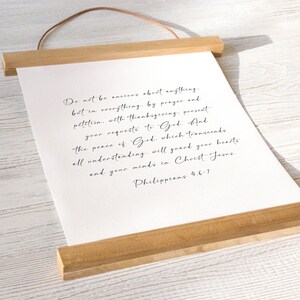 Do not be anxious about anything,
but in everything, by prayer and
petition, with thanksgiving, present
your requests to God. And
the peace of God, which transcends
all understanding, will guard your hearts
and your minds in Christ Jesus
Philippians 4:6-7